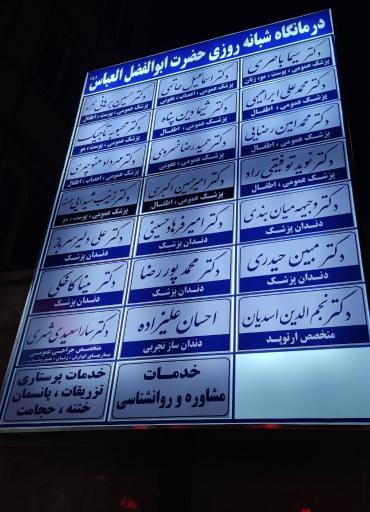 درمانگاه شبانه روزی حضرت ابوالفضل العباس (ع)
دکتر سیما باصری
پزشک عمومی ، پوست ، مو، زنان
دکتر اسماعیل حاتمی
پزشک عمومی ، اعصاب ، عفونی
دکتر حسین برهانی نژاد
پزشک عمومی ، پوست ، اطفال
دکتر محمد علی ابراهیمی
پزشک عمومی ، اطفال
دکتر شیما دین پناه
پزشک عمومی ، اطفال
دکتر محبوبه تاجیک
پزشک عمومی ، پوست ، مو
دکتر محمد امین رضایی
پزشک عمومی ، اطفال
دکتر حمیدرضا خسروی
پزشک عمومی ، عفونی
دکتر مهرداد منوچهری
پزشک عمومی ، اعصاب ، اطفال
دکتر نوید توفیقی راد
پزشک عمومی ، اطفال
دکتر امیرحسین اکبری
پزشک عمومی ، اطفال
دکتر
پزشک عمومی ، پوست ، مو
دکتر وجیهه میان بندی
دندان پزشک
دکتر امیر فرهاد حسینی
دندان پزشک
دکتر علی دلیر سرباز
دندان پزشک
دکتر مبین حیدری
دندان پزشک
دکتر محمد پور رضا
دندان پزشک
دکتر مینا کاخکی
دندان پزشک
دکتر نجم الدین اسدیان
متخصص ارتوپد
احسان علیزاده
دندان ساز تجربی
دکتر سارا سعیدی
متخصص جراحی عمومی
خدمات
مشاوره و روانشناسی
خدمات پرستاری
تزریقات ، پانسمان
ختنه ، حجامت